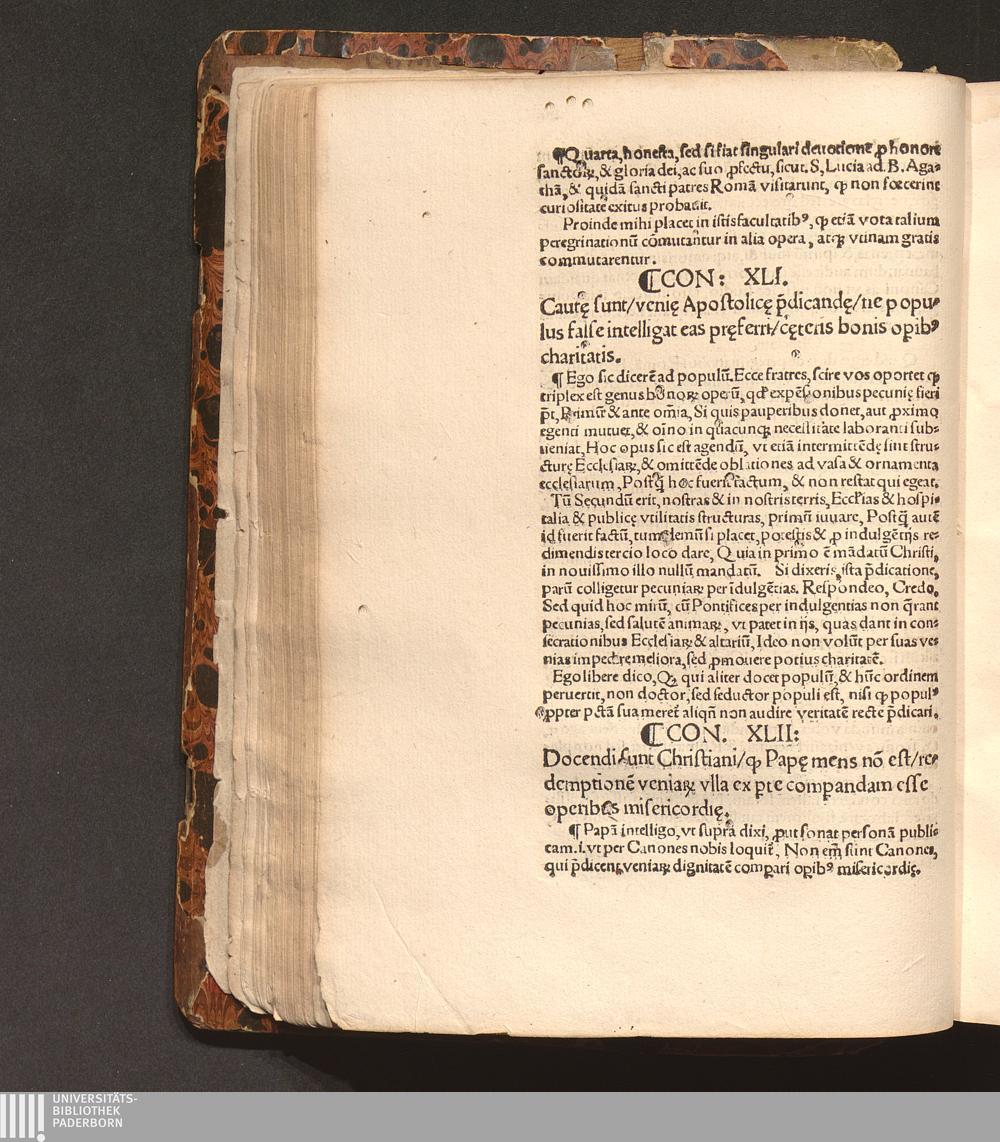 ¶Quarta, honesta, sed si fiat singulari deuotione ꝓ honore
sanctoꝝ, & gloria dei, ac suo ꝓfectu, sicut. S, Lucia ad. B. Aga-
thā, & quidā sancti patres Romā visitarunt, ꝙ non fœcerint
curiositate exitus probauit.
Proinde mihi placet in istis facultatibꝰ, ꝙ etiā vota talium
peregrinationū cōmutantur in alia opera, atqꝫ vtinam gratis
commutarentur.
¶CON: XLI.
Cautę sunt/venię Apostolicę p̄dicandę/ne popu-
lus false intelligat eas pręferri/cęteris bonis opibꝰ
charitatis.
¶ Ego sic dicerē ad populū. Ecce fratres, scire vos oportet ꝙ
triplex est genus bonoꝝ operū, qd̛ expēsionibus pecunię fieri
p̄t, Primū & ante om̄ia, Si quis pauperibus donet, aut ꝓximo
egenti mutuet, & oīno in quacunqꝫ necessitate laboranti sub-
ueniat, Hoc opus sic est agendū, vt etiā intermittēdę sint stru-
cturę Ecclesiaꝝ, & omittēde oblationes ad vasa & ornamenta
ecclesiarum, Postq̄ hoc fuerit factum, & non restat qui egeat.
Tū Secundū erit, nostras & in nostris terris, Eccl̄ias & hospi-
talia & publicę vtilitatis structuras, primū iuuare, Postq̄ autē
id fuerit factū, tum demū si placet, potestis & ꝓ indulgētijs re-
dimendis tercio loco dare, Quia in primo ē mādatū Christi,
in nouissimo illo nullū mandatū. Si dixeris, ista p̄dicatione,
parū colligetur pecuniaꝝ per īdulgētias. Respondeo, Credo.
Sed quid hoc mirū, cū Pontifices per indulgentias non q̄rant
pecunias, sed salutē animaꝝ, vt patet in ijs, quas dant in con-
secrationibus Ecclesiaꝝ & altariū, Ideo non volūt per suas ve-
nias impedire meliora, sed ꝓmouere potius charitatē.
Ego libere dico, Qꝫ qui aliter docet populū, & hūc ordinem
peruertit, non doctor, sed seductor populi est, nisi ꝙ populꝰ
ꝓpter pctā sua meret̄ aliqn̄ non audire veritatē recte p̄dicari.
¶CON. XLII:
Docendi sunt Christiani/ꝙ Papę mens nō est/re-
demptionē veniaꝝ vlla ex ꝑte compandam esse
operibus misericordię.
¶ Papā intelligo, vt supra dixi, ꝓut sonat personā publi-
cam. i. vt per Canones nobis loquit̄, Non em̄ sunt Canones,
qui p̄dicent, veniaꝝ dignitatē compari opibꝰ misericordię.
UNIVERSITÄTS-
BIBLIOTHEK
PADERBORN